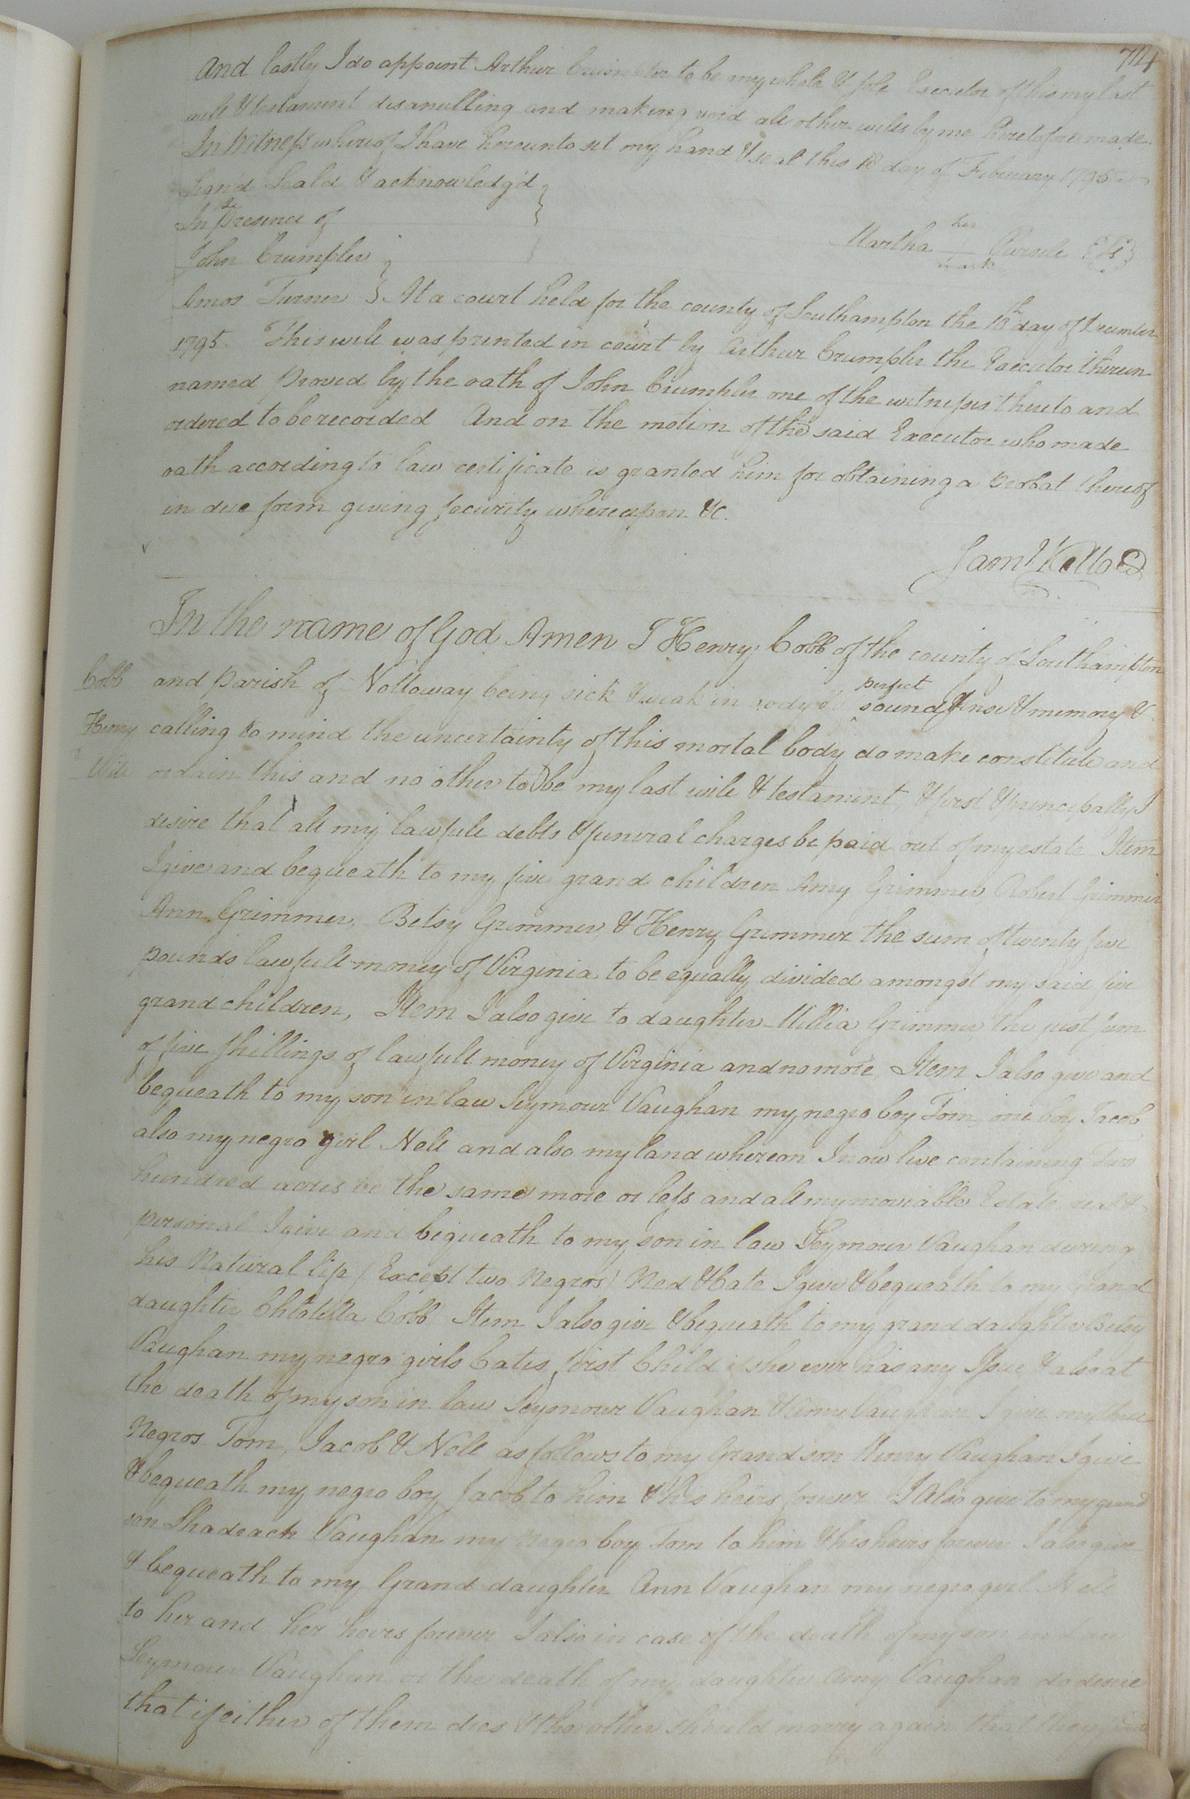 714
And lastly I do appoint Arthur Crumpler to be my whole & sole Executor of this my last
will & testament disanulling and making void all other wills by me heretofore made
In Witness whereof I have hereunto set my hand & seal this 18 day of February 1795
Sign'd Seal'd & acknowledg'd
In Presence of
her
Martha
mark
John Crumpler
Amos Turner } At a court held for the county of Southampton the 10th day of December
1795. This will was presented in court by Arthur Crumpler the Executor therein
named Proved by the oath of John Crumpler one of the witnesses thereto and
ordered to be recorded And on the motion of the said Executor who made
oath according to law certificate is granted him for obtaining a Probat thereof
in due form giving security whereupon &c.
Saml Kello
In the name of God Amen I Henry Cobb of the county of Southampton
Cobb
Henry
Will
and Parish of Nottoway being sick & weak in body of perfect sound sense & memory &
calling to mind the uncertainty of this mortal body do make constitute and
ordain this and no other to be my last will & testament & first & principally I
desire that all my lawfull debts & funeral charges be paid out of my estate Item
I give and bequeath to my five grand children Amy Grimmer Robert Grimmer
Ann Grimmer, Betsy Grimmer, & Henry Grimmer the sum of twenty five
pounds lawfull money of Virginia to be equally divided amongst my said five
grand children, Item I also give to daughter Grimmer the just sum
of five shillings of lawfull money of Virginia and no more Item I also give and
bequeath to my son in law Seymour Vaughan my negro boy Tom, one boy Jacob
also my negro girl Nell and also my land whereon I now live containing two
hundred acres be the same more or less and all my moveable Estate real &
personal I give and bequeath to my son in law Seymour Vaughan during
his Natural life (Except two Negros) Ned & Cate I give & bequeath to my Grand
daughter Cobb Item I also give & bequeath to my grand daughter
Vaughan my negro girls Cates first Child if she ever has any Issue & also at
the death of my son in law Seymour Vaughan & Vaughan I give my three
Negros Tom, Jacob & Nell as follows to my Grand son Henry Vaughan I give
& bequeath my negro boy Jacob to him & his heirs forever I Also give to my grand
son Shadrach Vaughan my negro boy Tom to him & his heirs forever I also give
& bequeath to my Grand daughter Ann Vaughan my negro girl Nell
to her and her heirs forever I also in case of the death of my son in law
Seymour Vaughan or the death of my daughter Vaughan do desire
that if either of them dies & the other should marry again that they